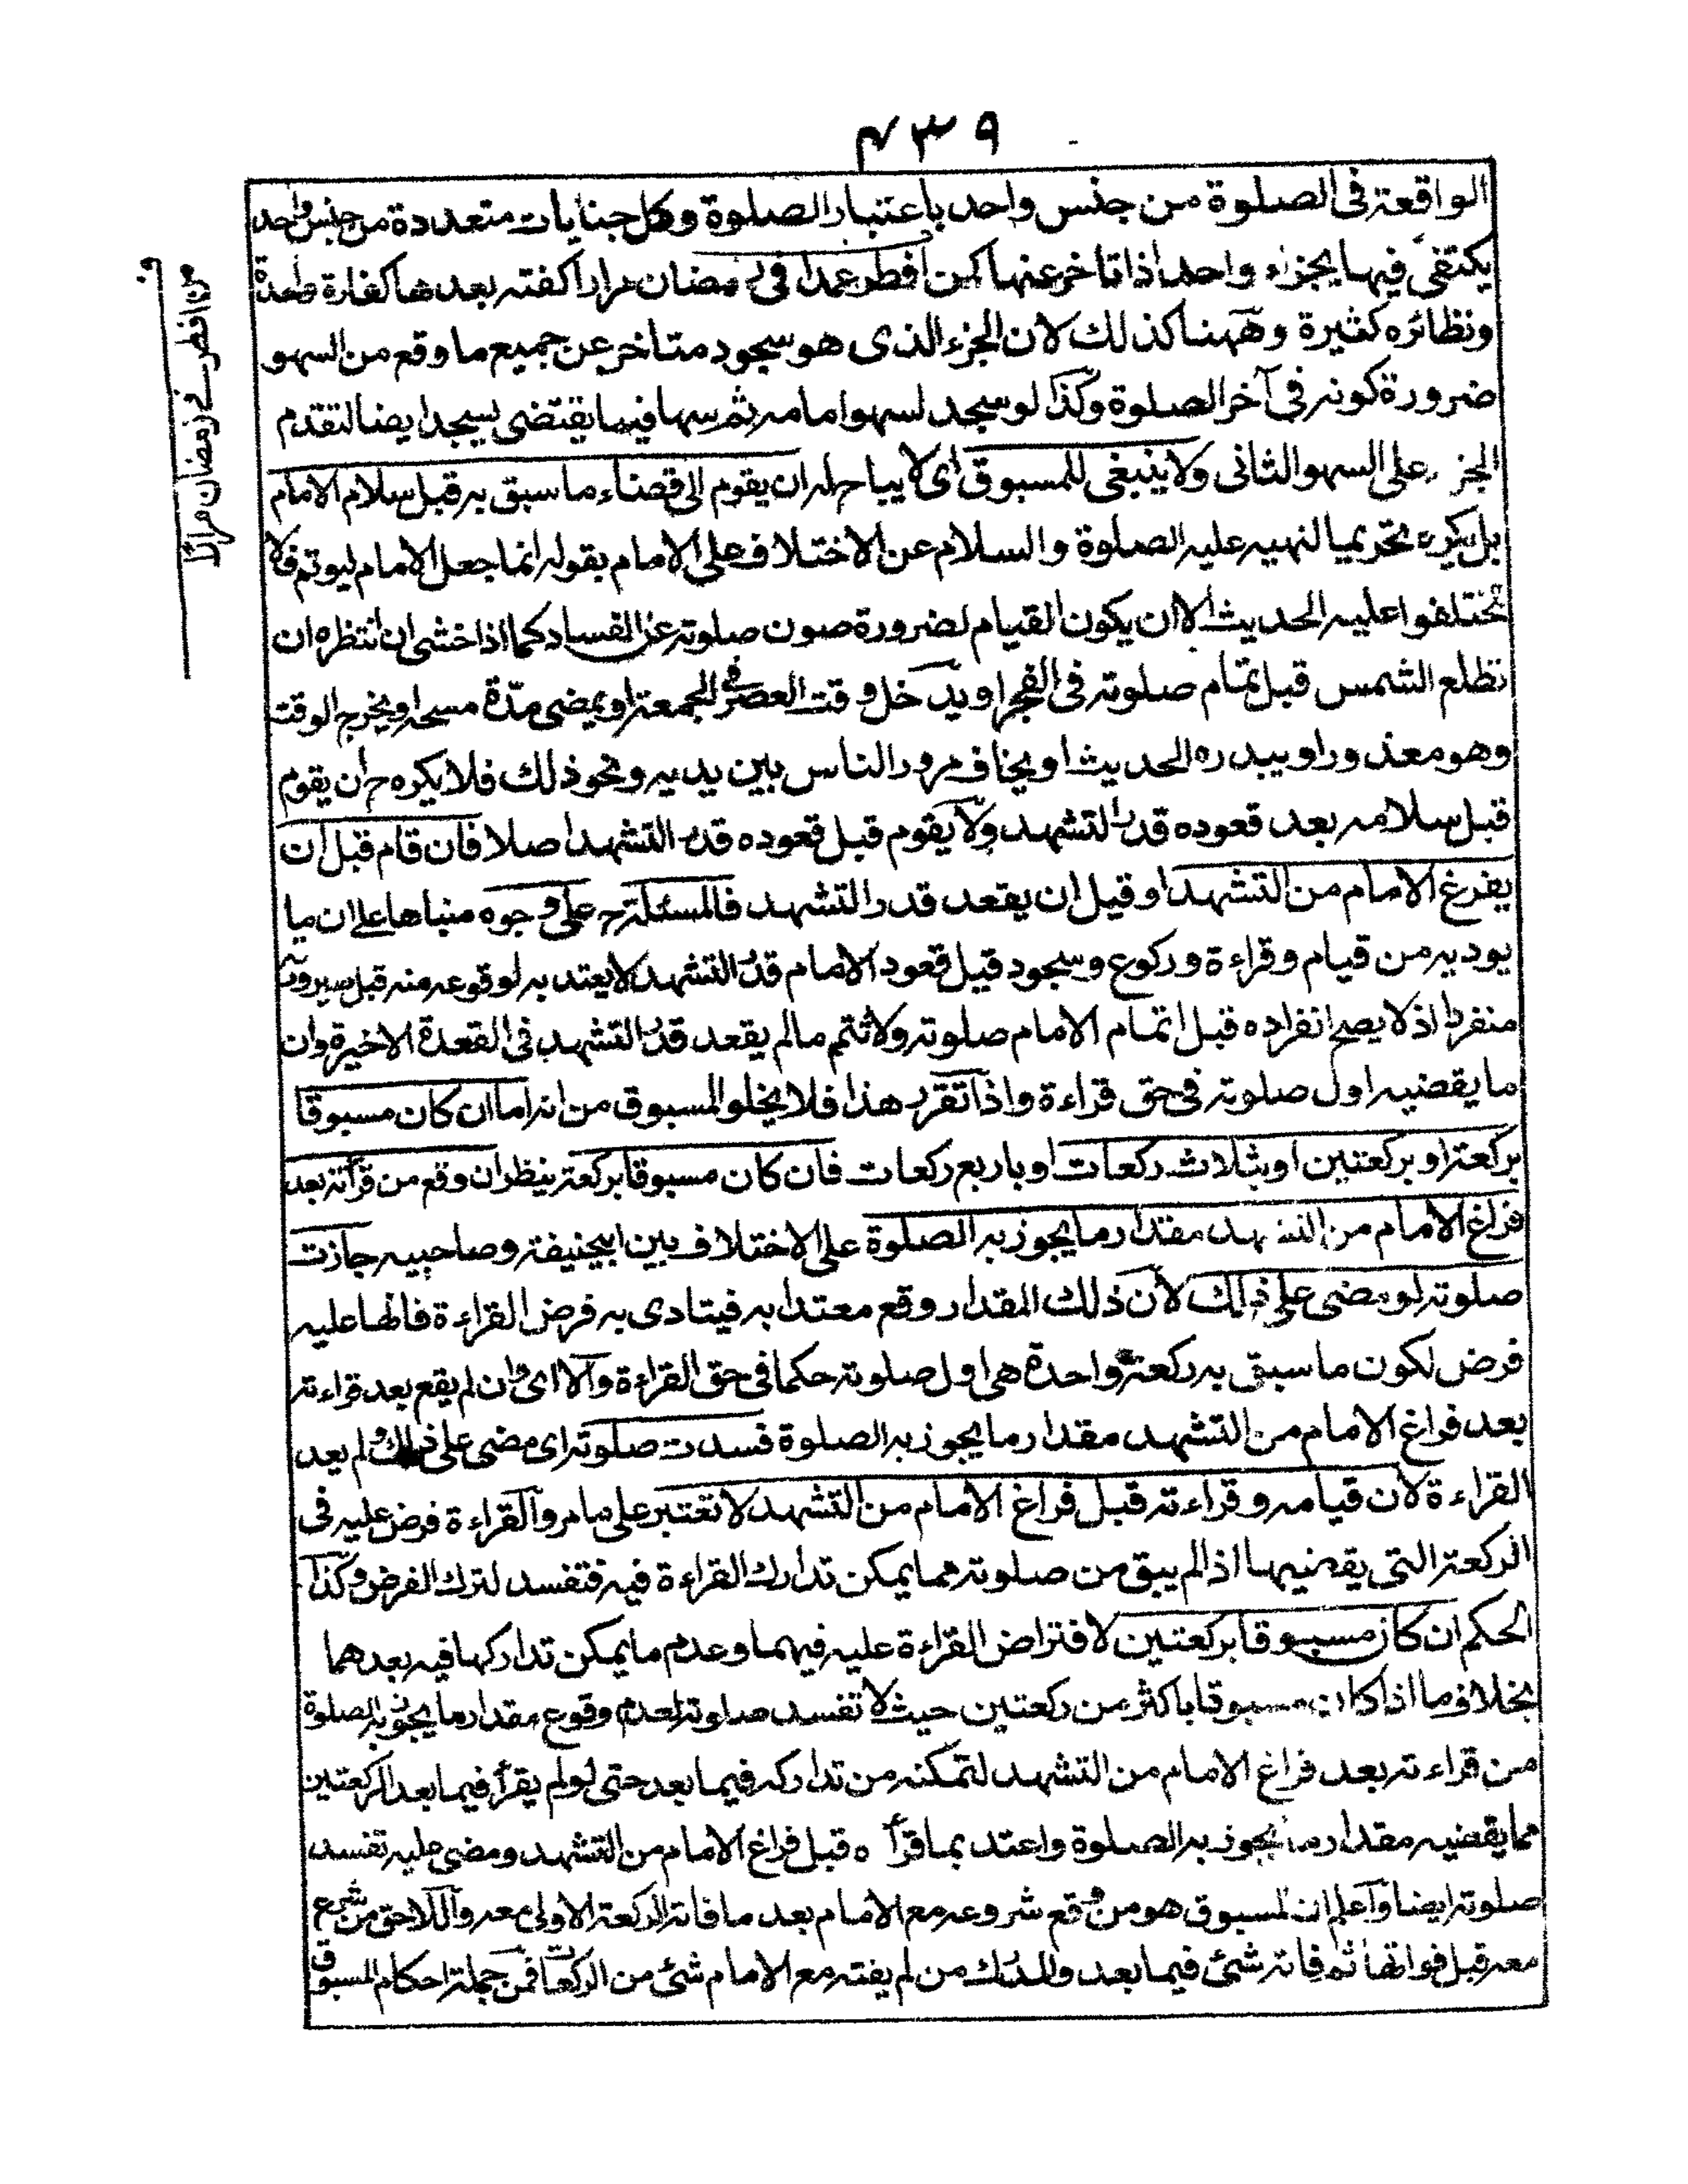 ۴۳۹
الواقعة فى الصلوة من جنس واحد باعتبار الصلوة وكل جنايات متعددة من جنس واحد
يكتفى فيها بجزاء واحد اذا تاخر عنها كمن افطر عمدا فى رمضان مرارا كفته بعدها كفارة واحدة
ونظائره كثيرة وههنا كذلك لان الجزء الذى هو سجود متاخر عن جميع ما وقع من السهو
ضرورة كونه فى آخر الصلوة وكذا لو سجد لسهو امامه ثم سها فيما يقتضى يسجد ايضا لتقدم
الجزء على السهو الثانى ولا ينبغى للمسبوق اى لا يباح له ان يقوم الى قضاء ما سبق به قبل سلام الامام
بل يكره تحريما لنهيه عليه الصلوة والسلام عن الاختلاف على الامام بقوله انما جعل الامام ليوتم فلا
تختلفوا عليه الحديث الا ان يكون القيام لضرورة صون صلوته عن الفساد كما اذا خشى ان انتظره ان
تطلع الشمس قبل تمام صلوته فى الفجر او يدخل وقت العصر فى الجمعة او يمضى مدة مسحه او يخرج الوقت
وهو معذور او يبدره الحديث او يخاف مرور الناس بين يديه ونحو ذلك فلا يكره ح ان يقوم
قبل سلامه بعد قعوده قدر التشهد ولا يقوم قبل قعوده قدر التشهد اصلا فان قام قبل ان
يفرغ الامام من التشهد او قيل ان يقعد قدر التشهد فالمسئلة ح على وجوه منباها على ان ما
يوديه من قيام وقراءة وركوع وسجود قيل قعود الامام قدر التشهد لا يعتد به لوقوعه منه قبل صيرورته
منفردا اذ لا يصح انفراده قبل اتمام الامام صلوته ولا تتم ما لم يقعد قدر التشهد فى القعدة الاخيرة وان
ما يقضيه اول صلوته فى حق قراءة واذا تقرر هذا فلا يخلو المسبوق من انه اما ان كان مسبوقا
بركعة او بركعتين او بثلاث ركعات او باربع ركعات فان كان مسبوقا بركعة ينظر ان وقع من قرأته بعد
فراغ الامام من التشهد مقدار ما يجوز به الصلوة على الاختلاف بين ابيحنيفة وصاحبيه جازت
صلوته لو مضى على ذلك لان ذلك المقدار وقع معتدا به فيتادى به فرض القراءة فانها عليه
فرض لكون ما سبق به ركعة واحدة هى اول صلوته حكما فى حق القراءة والا اى وان لم يقع بعد قراءته
بعد فراغ الامام من التشهد مقدار ما يجوز به الصلوة فسدت صلوته اى مضى على ذلك ولم يعد
القراءة لان قيامه وقراءته قبل فراغ الامام من التشهد لا تعتبر على ما مر والقراءة فرض عليه فى
الركعة التى يقضيها اذ لم يبق من صلوته مما يمكن تدارك القراءة فيه فتفسد لترك الفرض وكذا
الحكم ان كان مسبوقا بركعتين لافتراض القراءة عليه فيهما وعدم ما يمكن تداركها فيه بعدهما
بخلاف ما اذا كان مسبوقا باكثر من ركعتين حيث لا تفسد صلوته لعدم وقوع مقدار ما يجوز به الصلوة
من قراءته بعد فراغ الامام من التشهد لتمكنه من تداركه فيما بعد حتى لو لم يقرأ فيما بعد الركعتين
مما يقضيه مقدار ما يجوز به الصلوة واعتد بما قرأه قبل فراغ الامام من التشهد ومضى عليه تفسد
صلوته ايضا واعلم ان المسبوق هو من وقع شروعه مع الامام بعد ما فاته الركعة الاولى معه واللاحق من شرع
معه قبل فواتها ثم فاته شئ فيما بعد والمدرك من لم يفته مع الامام شئ من الركعات فمن جملة احكام المسبوق
من افطر فى رمضان مرارا